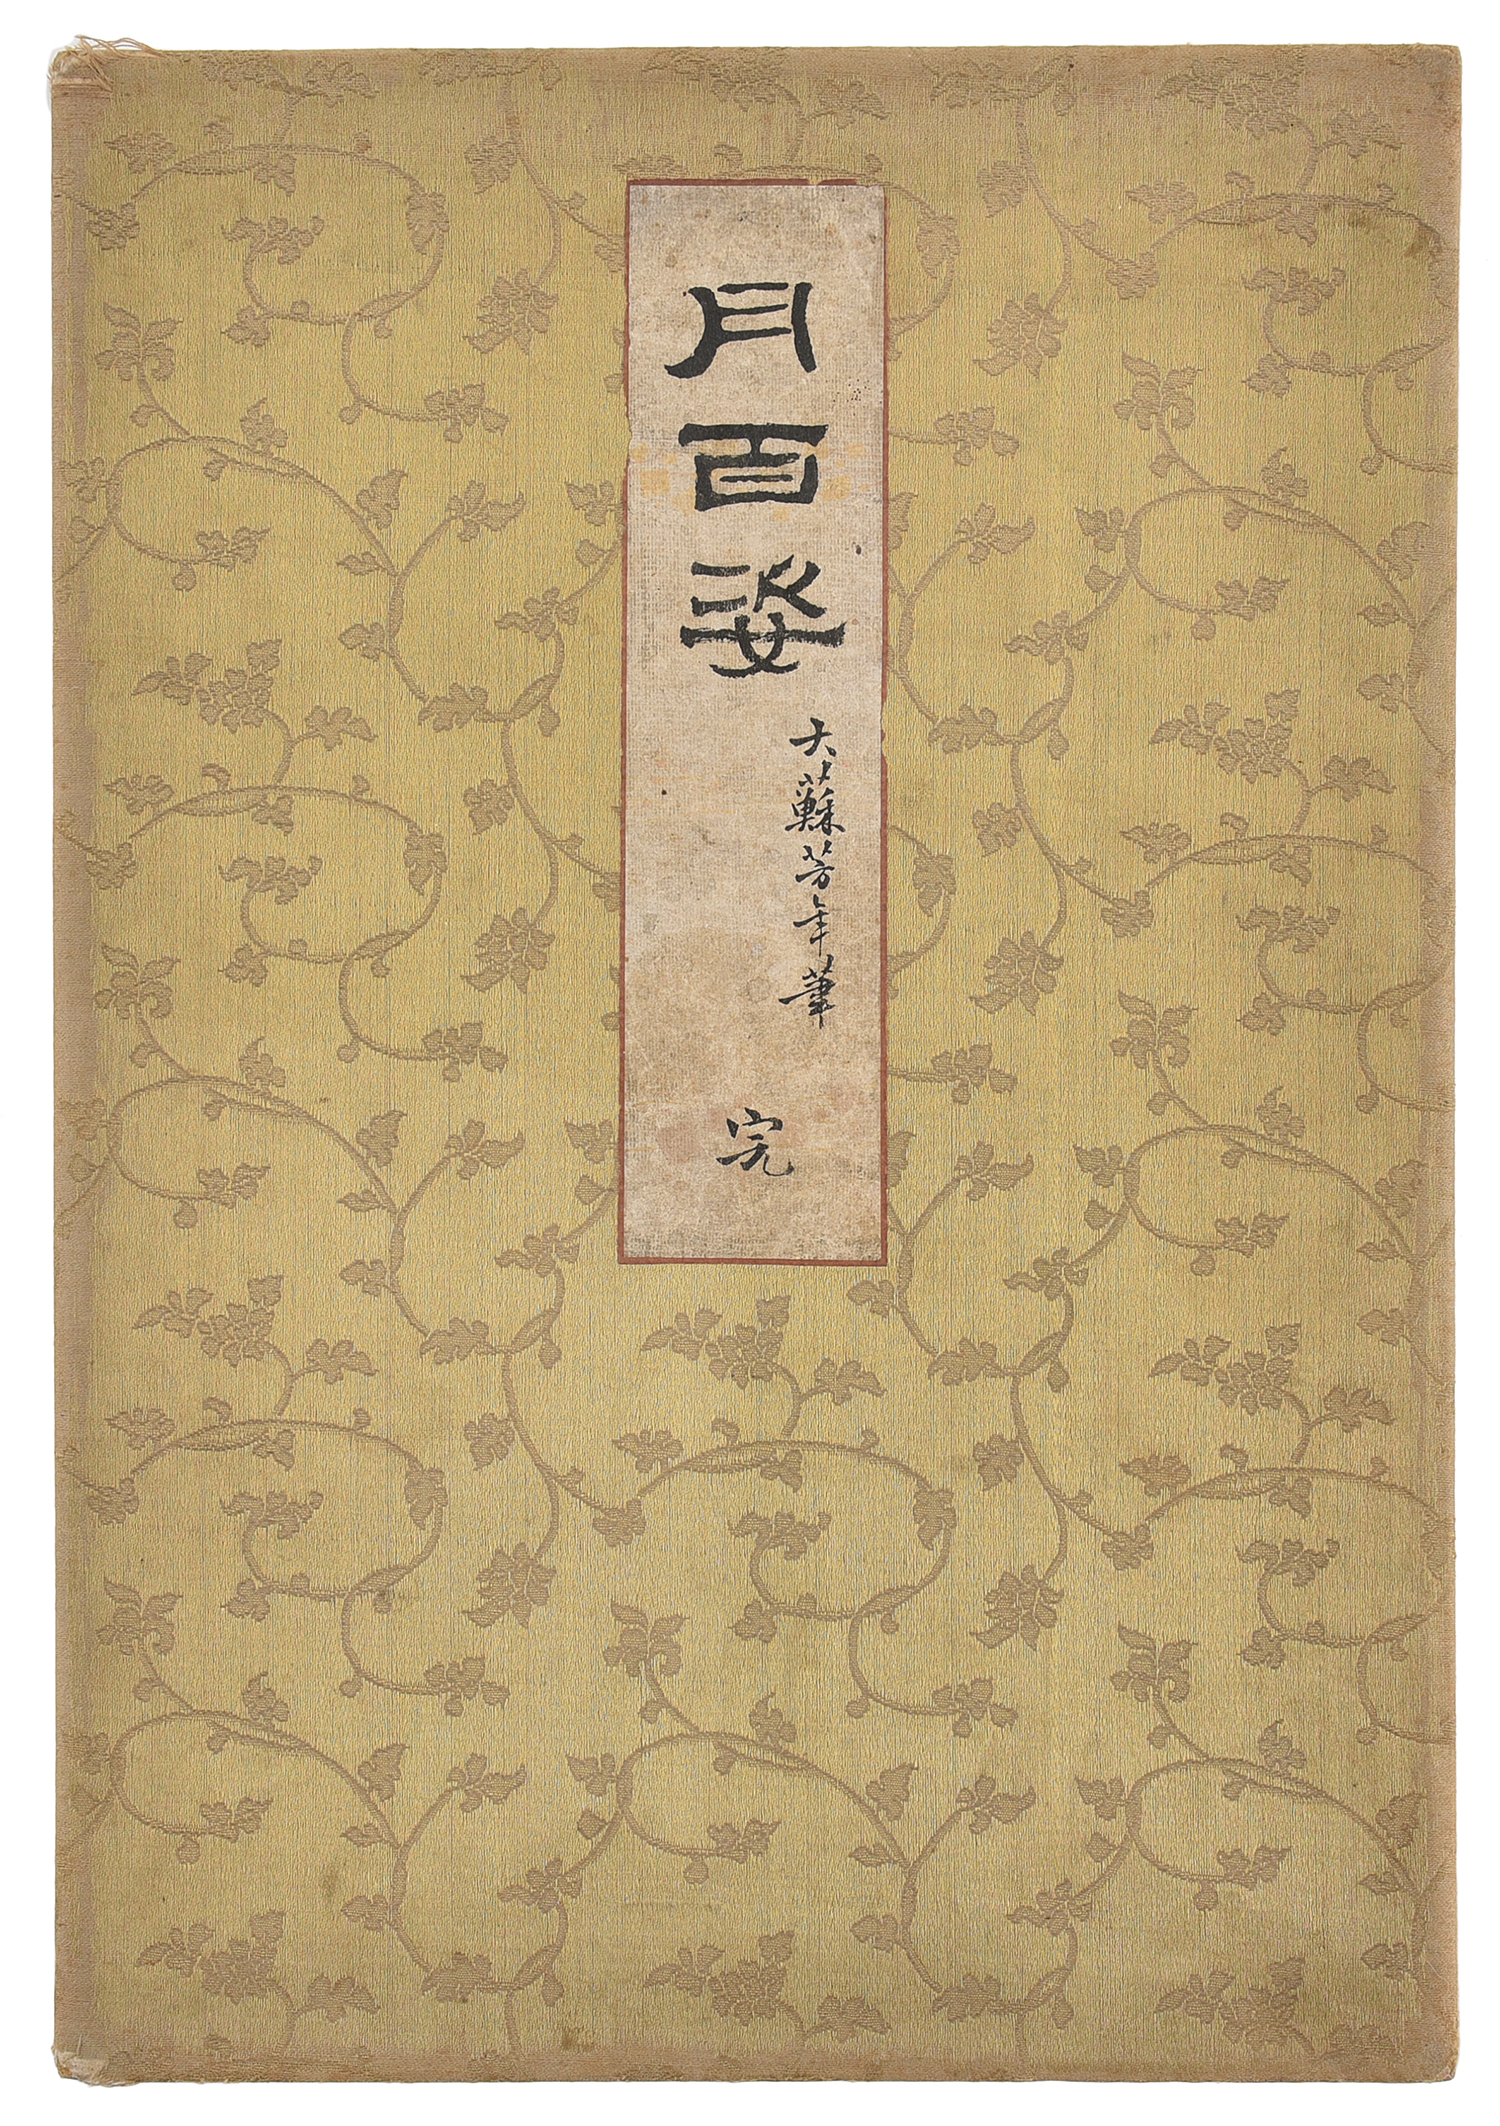 月百姿
大蘇芳年筆
完